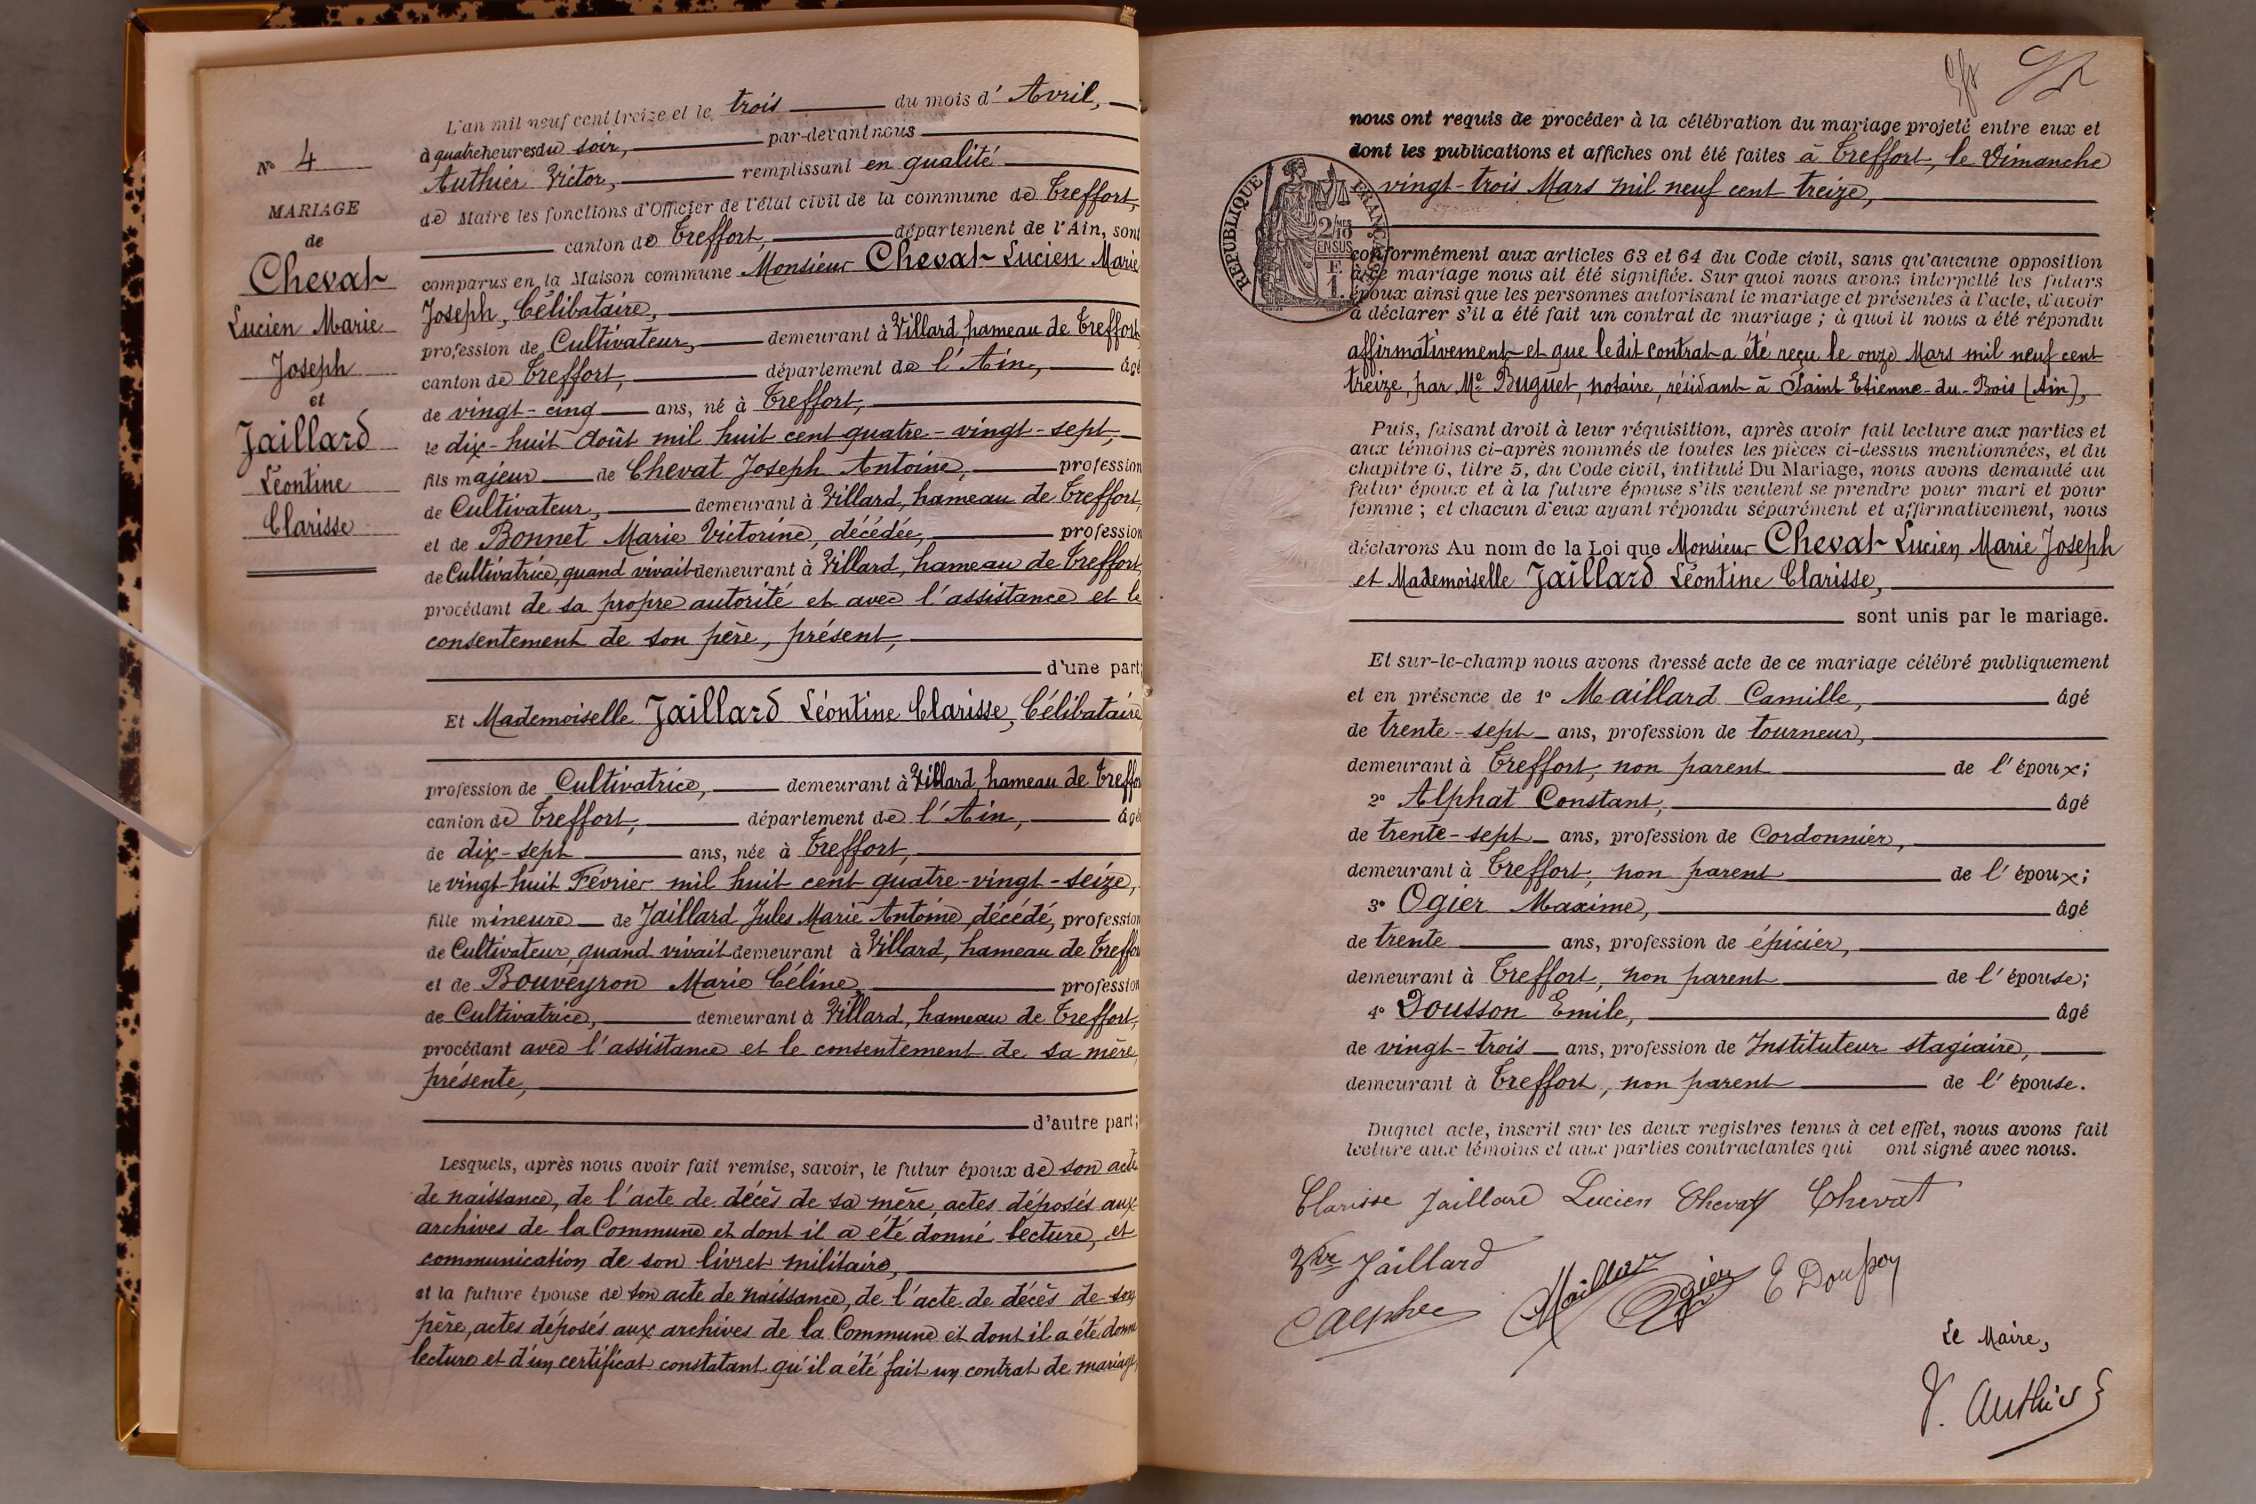 N° 4
MARIAGE
de
Chevat
Lucien Marie
Joseph
et
Jaillard
Léontine
Clarisse
L'an mil neuf cent treize et le trois du mois d'Avril,
à quatre heures du soir, par-devant nous
Authier Victor, remplissant en qualité
de Maire les fonctions d'Officier de l'état civil de la commune de Treffort,
canton de Treffort, département de l'Ain, sont
comparus en la Maison commune Monsieur Chevat Lucien Marie
Joseph, Célibataire,
profession de Cultivateur, demeurant à Villard, hameau de Treffort
canton de Treffort, département de l'Ain, âgé
de vingt-cinq ans, né à Treffort,
le dix-huit Août mil huit cent quatre-vingt-sept,
fils majeur de Chevat Joseph Antoine, profession
de Cultivateur, demeurant à Villard, hameau de Treffort,
et de Bonnet Marie Victorine, décédée, profession
de Cultivatrice, quand vivait demeurant à Villard, hameau de Treffort,
procédant de sa propre autorité et avec l'assistance et le
consentement de son père, présent,
d'une part;
Et Mademoiselle Jaillard Léontine Clarisse, Célibataire
profession de Cultivatrice, demeurant à Villard, hameau de Treffor
canton de Treffort, département de l'Ain, âgé
de dix-sept ans, née à Treffort,
le vingt-huit Février mil huit cent quatre-vingt-seize,
fille mineure de Jaillard Jules Marie Antoine, décédé, profession
de Cultivateur, quand vivait demeurant à Villard, hameau de Treffor
et de Bouveyron Marie Céline, profession
de Cultivatrice, demeurant à Villard, hameau de Treffort,
procédant avec l'assistance et le consentement de sa mère,
présente,
d'autre part;
Lesquels, après nous avoir fait remise, savoir, le futur époux de son acte
de naissance, de l'acte de décès de sa mère, actes déposés aux
archives de la Commune et dont il a été donné lecture, et
communication de son livret militaire,
et la future épouse de son acte de naissance, de l'acte de décès de son
père, actes déposés aux archives de la Commune et dont il a été donné
lecture et d'un certificat constatant qu'il a été fait un contrat de mariage,
nous ont requis de procéder à la célébration du mariage projeté entre eux et
dont les publications et affiches ont été faites à Treffort, le Dimanche
vingt-trois Mars mil neuf cent treize,
RÉPUBLIQUE FRANÇAISE
2/10
EN SUS
F.
1.
conformément aux articles 63 et 64 du Code civil, sans qu'aucune opposition
à ce mariage nous ait été signifiée. Sur quoi nous avons interpellé les futurs
époux ainsi que les personnes autorisant le mariage et présentes à l'acte, d'avoir
à déclarer s'il a été fait un contrat de mariage; à quoi il nous a été répondu
affirmativement et que ledit contrat a été reçu le onze Mars mil neuf cent
treize, par Me Buguet, notaire, résidant à Saint Etienne-du-Bois (Ain),
Puis, faisant droit à leur réquisition, après avoir fait lecture aux parties et
aux témoins ci-après nommés de toutes les pièces ci-dessus mentionnées, et du
chapitre 6, titre 5, du Code civil, intitulé Du Mariage, nous avons demandé au
futur époux et à la future épouse s'ils veulent se prendre pour mari et pour
femme; et chacun d'eux ayant répondu séparément et affirmativement, nous
déclarons Au nom de la Loi que Monsieur Chevat Lucien Marie Joseph
et Mademoiselle Jaillard Léontine Clarisse,
sont unis par le mariage.
Et sur-le-champ nous avons dressé acte de ce mariage célébré publiquement
et en présence de 1° Maillard Camille, âgé
de trente-sept ans, profession de tourneur,
demeurant à Treffort, non parent de l'époux;
2° Alphat Constant, âgé
de trente-sept ans, profession de Cordonnier,
demeurant à Treffort, non parent de l'époux;
3° Ogier Maxime, âgé
de trente ans, profession de épicier,
demeurant à Treffort, non parent de l'épouse;
4° Dousson Emile, âgé
de vingt-trois ans, profession de Instituteur stagiaire,
demeurant à Treffort, non parent de l'épouse.
Duquel acte, inscrit sur les deux registres tenus à cet effet, nous avons fait
lecture aux témoins et aux parties contractantes qui ont signé avec nous.
Clarisse Jaillard Lucien Chevat Chevat
Vve Jaillard
Maillard Ogier E Dousson
Le Maire,
V. Authier